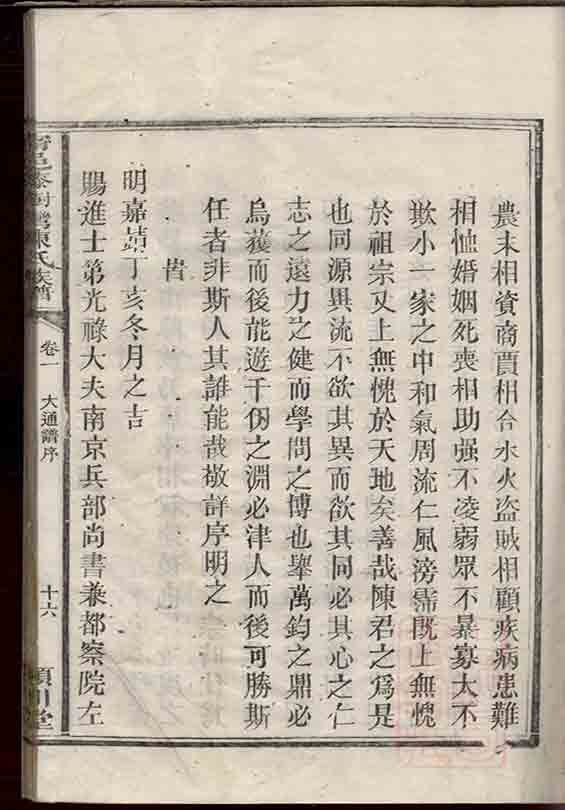 農末相資商賈相合水火盜賊相顧疾病患難
相恤婚姻死喪相助强不凌弱眾不暴寡大不
欺小一家之中和氣周流仁風滂霈既上無愧
於祖宗又上無愧於天地矣善哉陳君之為是
也同源異流不欲其異而欲其同必具心之仁
志之遠力之健而學問之博也舉萬鈞之鼎必
烏獲而後能遊千仞之淵必津人而後可勝斯
任者非斯人其誰能哉敬詳序明之
旹
明嘉靖丁亥冬月之吉
賜進士第光祿大夫南京兵部尚書兼都察院左
陳氏族譜
卷一
大通譜序
十六
潁川堂